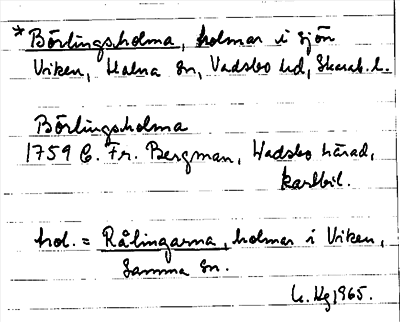 * Börlingsholma, holmar i sjön
Viken, Halna sn, Vadsbo hd, Skarab. l.
Börlingsholma
1759 C. Fr. Bergman, Wadsbo härad,
kartbil.
hol. = Rålingarna, holmar i Viken,
Samma sn.
Hg 1965.